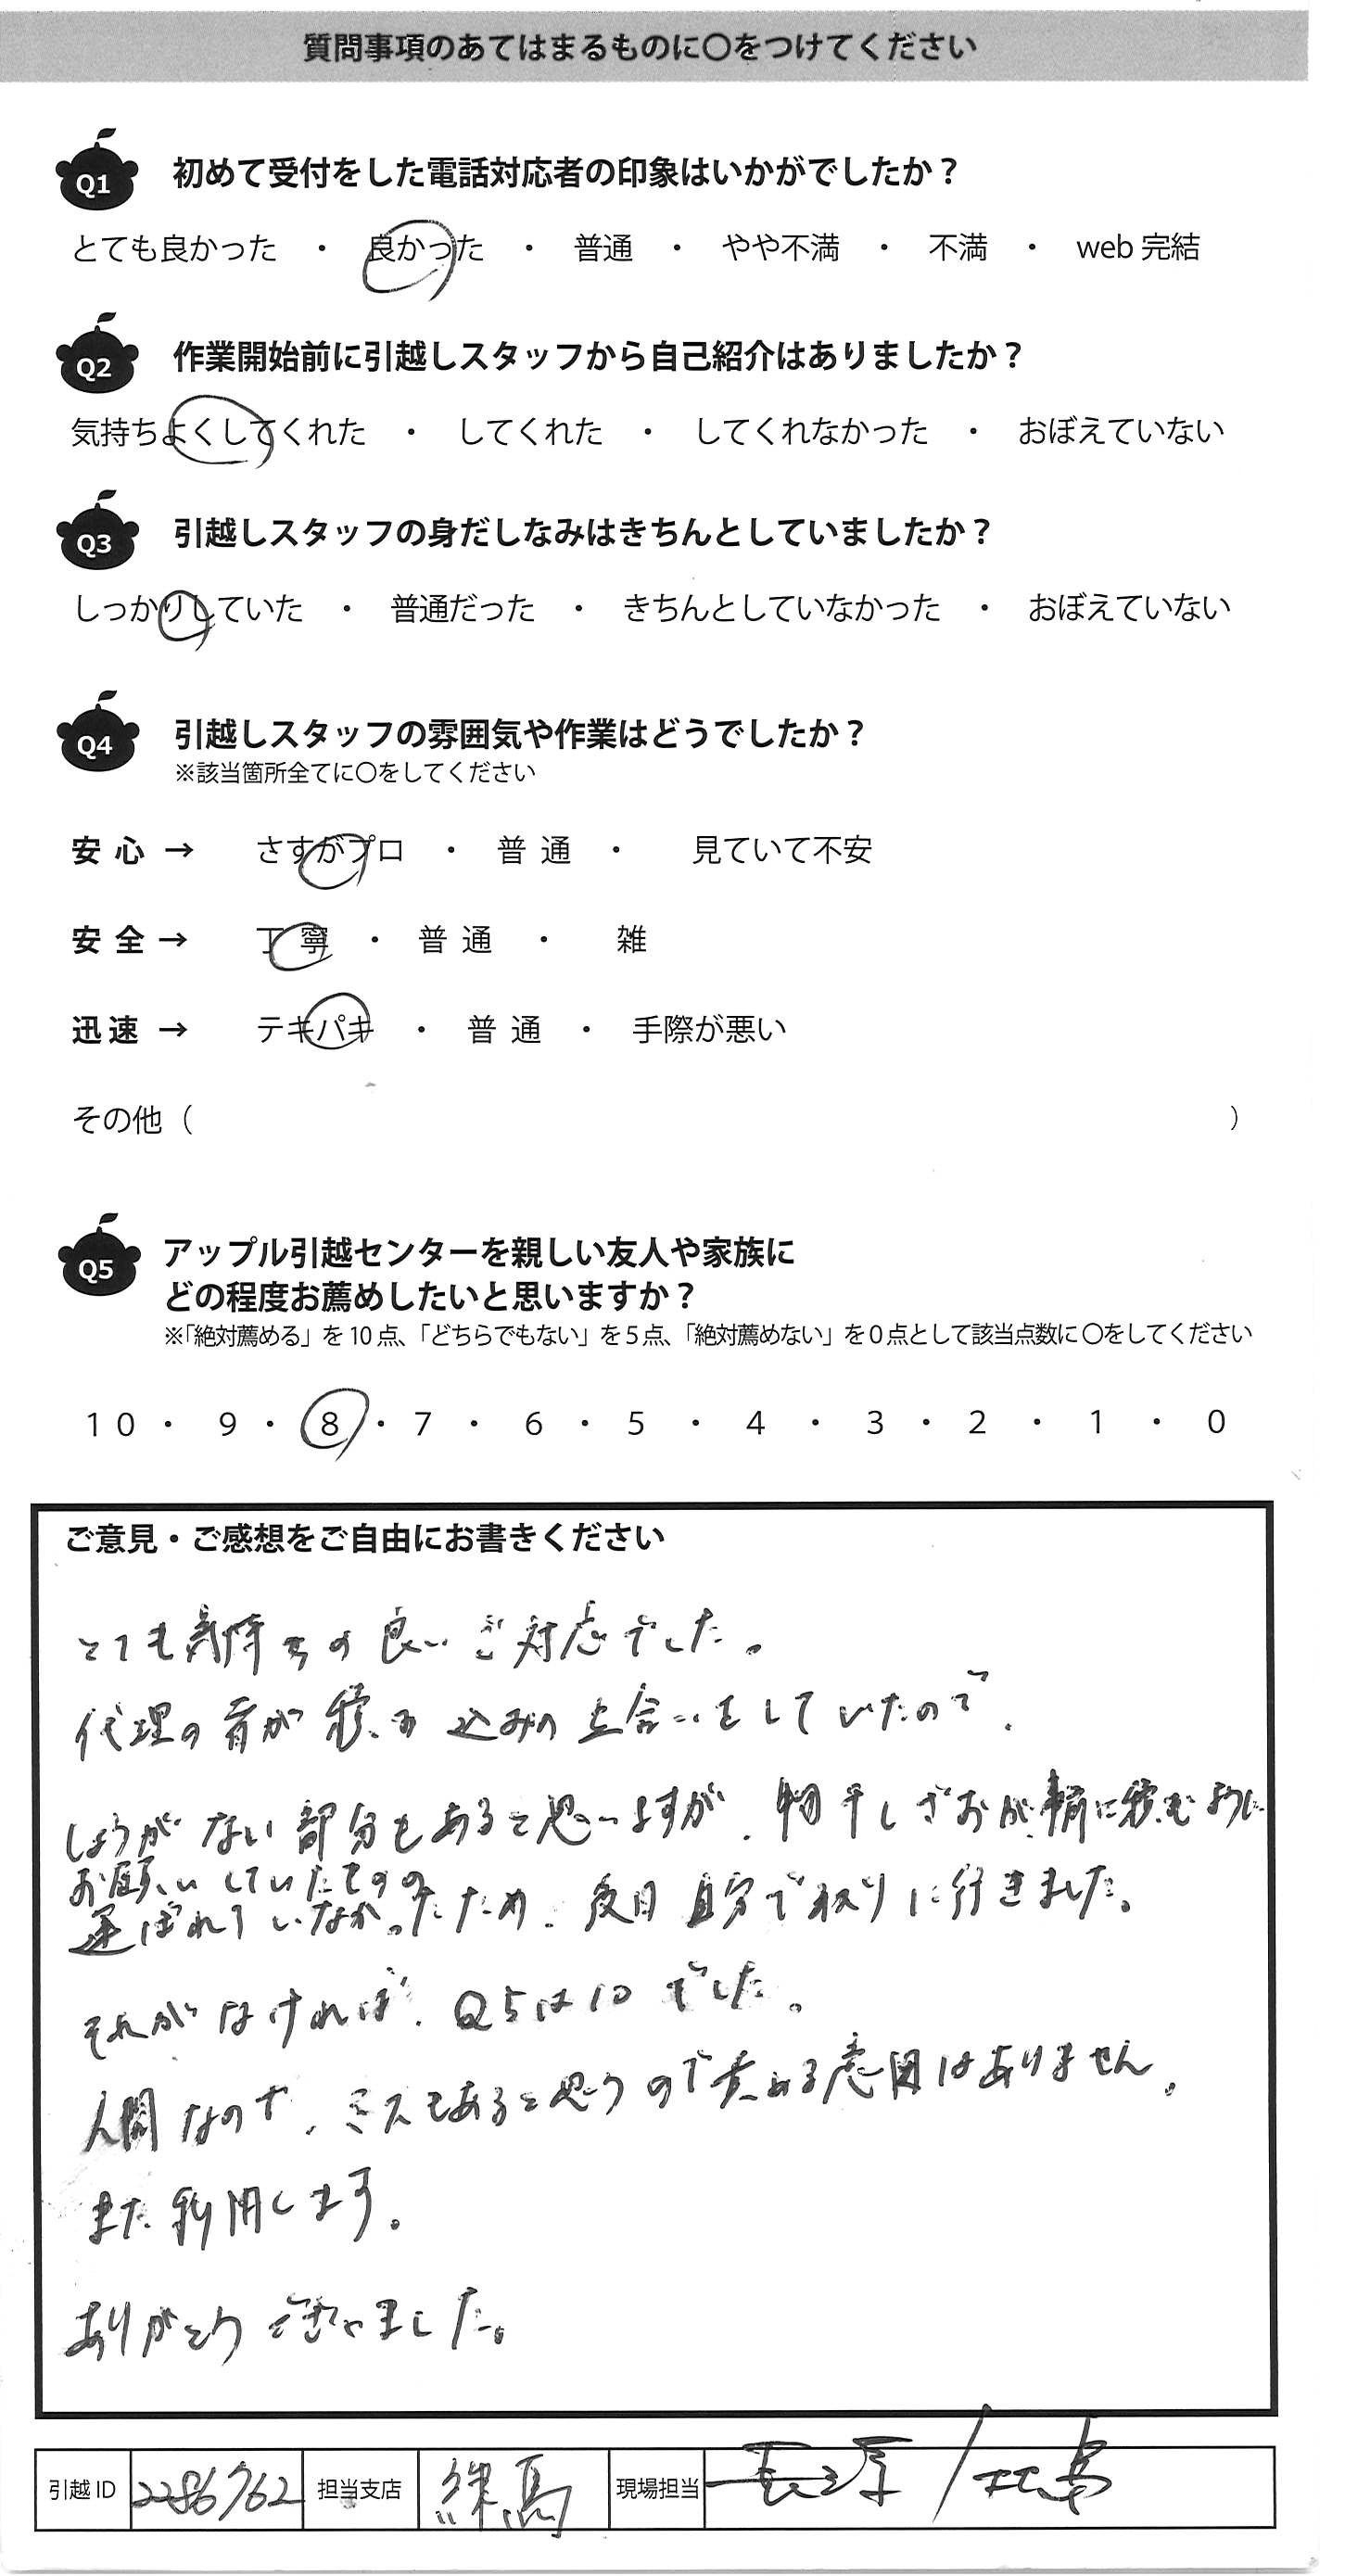 質問事項のあてはまるものに〇をつけてください
Q1 初めて受付をした電話対応者の印象はいかがでしたか？
とても良かった ・ 良かった ・ 普通 ・ やや不満 ・ 不満 ・ web 完結
Q2 作業開始前に引越しスタッフから自己紹介はありましたか？
気持ちよくしてくれた ・ してくれた ・ してくれなかった ・ おぼえていない
Q3 引越しスタッフの身だしなみはきちんとしていましたか？
しっかりしていた ・ 普通だった ・ きちんとしていなかった ・ おぼえていない
Q4 引越しスタッフの雰囲気や作業はどうでしたか？
※該当箇所全てに〇をしてください
安心 → さすがプロ ・ 普通 ・ 見ていて不安
安全 → 丁寧 ・ 普通 ・ 雑
迅速 → テキパキ ・ 普通 ・ 手際が悪い
その他（ ）
Q5 アップル引越センターを親しい友人や家族に
どの程度お薦めしたいと思いますか？
※「絶対薦める」を 10 点、「どちらでもない」を 5 点、「絶対薦めない」を 0 点として該当点数に 〇をしてください
10 ・ 9 ・ 8 ・ 7 ・ 6 ・ 5 ・ 4 ・ 3 ・ 2 ・ 1 ・ 0
ご意見・ご感想をご自由にお書きください
とても気持ちの良いご対応でした。
代理の者が積み込みの立合いをしていたので、
しょうがない部分もあると思いますが、物干しざおが事前に積むように
お願いしていたものの
運ばれていなかったため、後日自分で取りに行きました。
それがなければ、Q5は10でした。
人間なので、ミスもあると思うので責める意図はありません。
また利用します。
ありがとうございました。
引越 ID 2286762 担当支店 練馬 現場担当